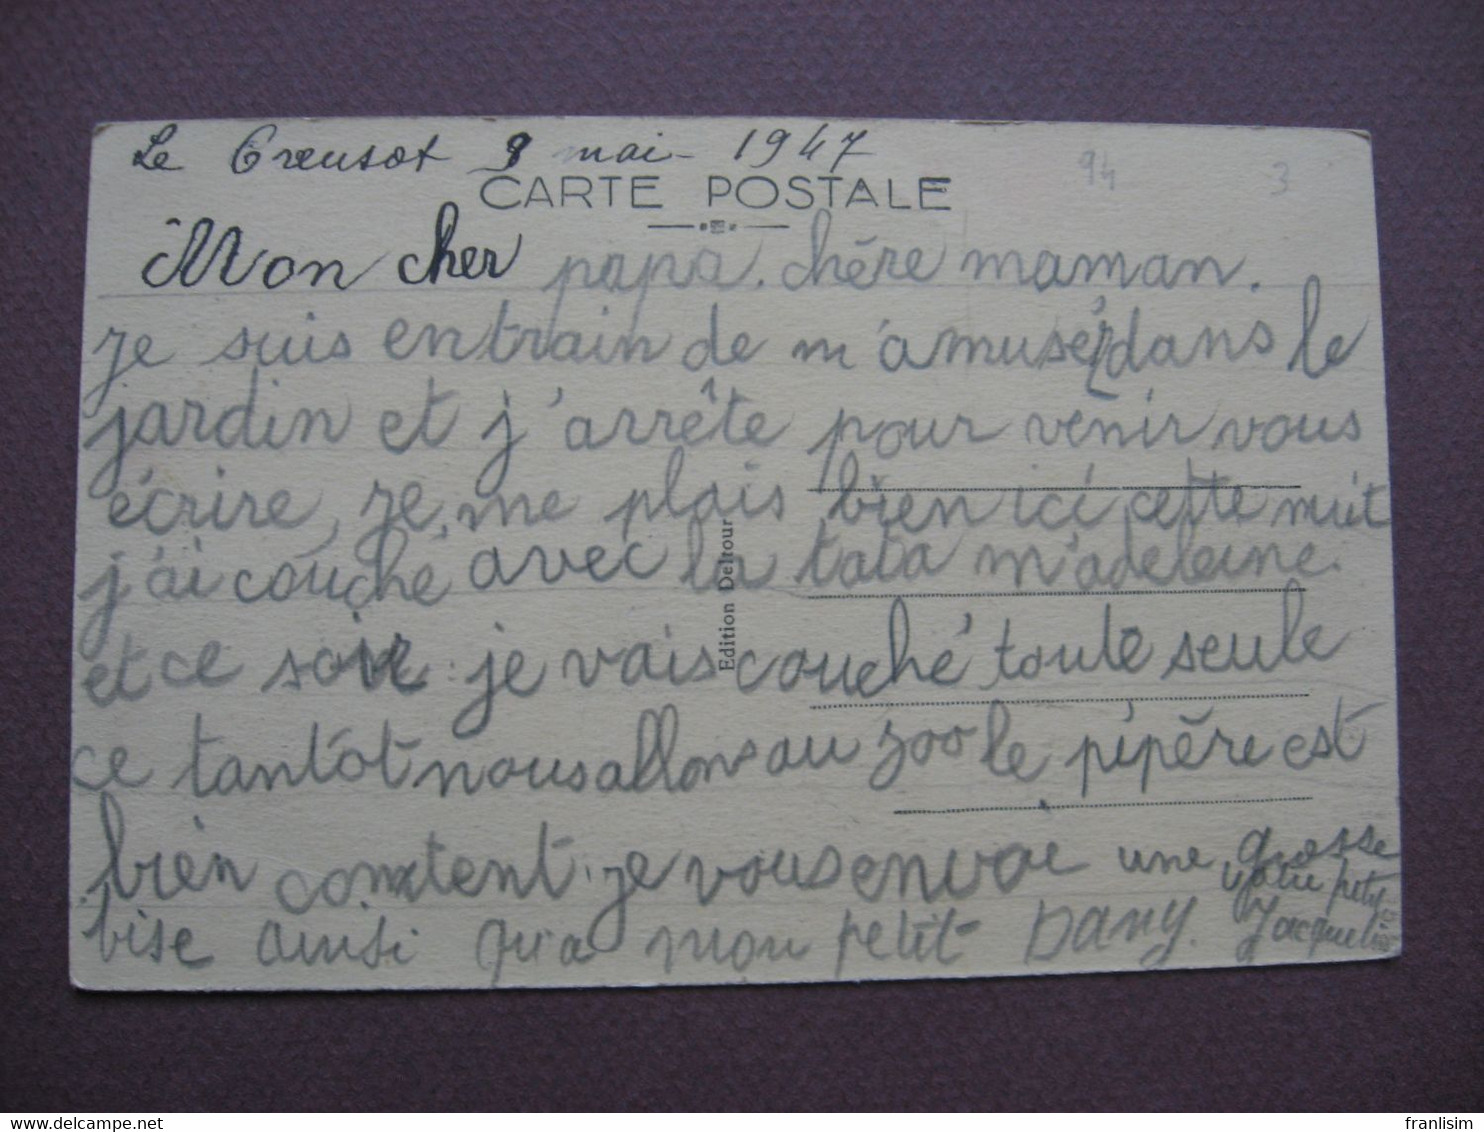 Le Creusot 8 mai - 1947
94 3
CARTE POSTALE
Mon cher papa. chère maman.
je suis en train de m'amusér dans le
jardin et j'arrête pour venir vous
écrire, je, me plais bien ici cette nuit
j'ai couché avec la tata m'adeleine.
et ce soir je vais couché toute seule
ce tantôt nous allons au zoo le pépère est
bien contient je vous envoie une grosse
bise ainsi qu'a mon petit Dany. votre petite
Jacqueline
Edition Delfour
franlisim